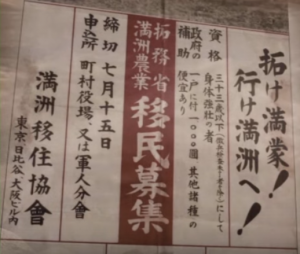 拓け満蒙!
行け満洲へ!
資格 三十三歳以下
にして
身体強壮の者
政府の補助 一戸に付一〇〇〇圓 其他諸種の
便宜あり
拓務省
満洲農業
移民募集
締切 七月十五日
申込所 町村役場、又は軍人分會
満洲移住協會
東京日比谷大阪ビル内